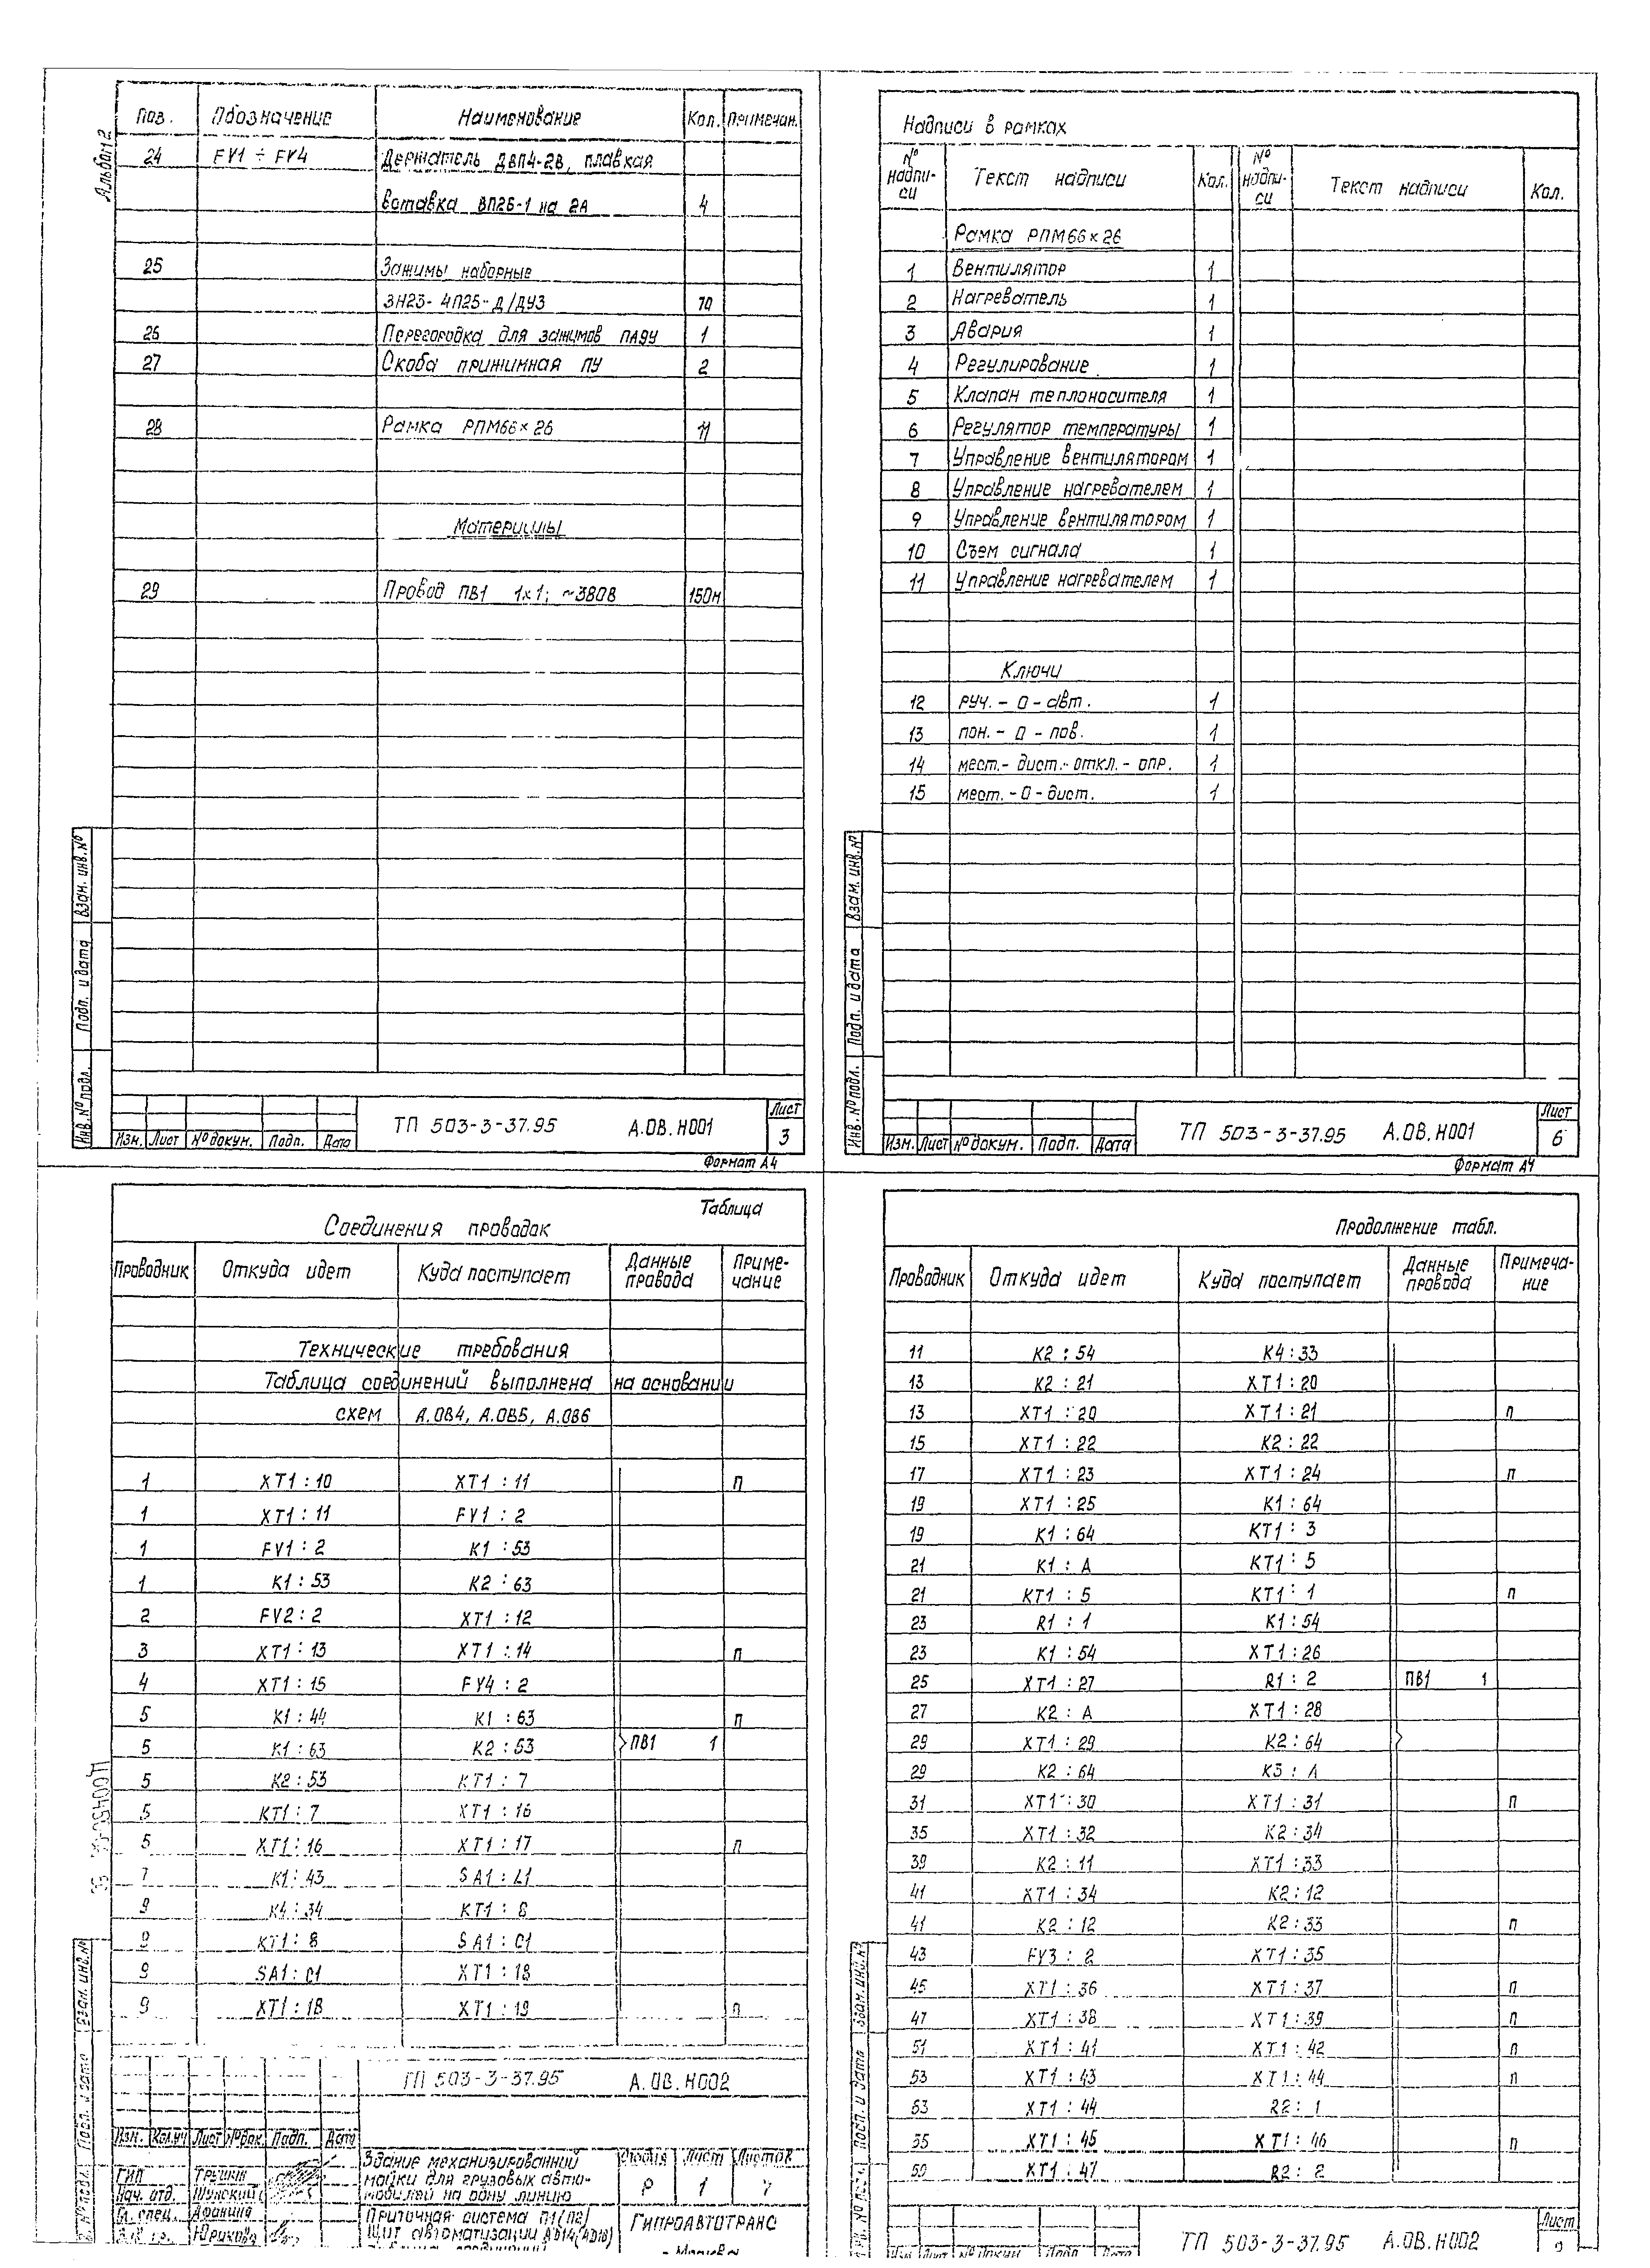 Альбом 2
Поз. Обозначение Наименование Кол. Примечан.
24 FV1 ÷ FV4 Держатель ДВП4-2В, плавкая
вставка ВП2Б-1 на 2А 4
25 Зажимы наборные
ЗН23-4П25-Д/ДУ3 70
26 Перегородка для зажимов ПАЗУ 1
27 Скоба прижимная ПУ 2
28 Рамка РПМ66×26 11
Материалы
29 Провод ПВ1 1×1; ~380В 150м
Инв. № подл. Подп. и дата Взам. инв. №
Изм. Лист № докум. Подп. Дата
ТП 503-3-37.95 А.ОВ.Н001
Лист
3
Формат А4
Надписи в рамках
№ надпи-си Текст надписи Кол. № надпи-си Текст надписи Кол.
Рамка РПМ66×26
1 Вентилятор 1
2 Нагреватель 1
3 Авария 1
4 Регулирование 1
5 Клапан теплоносителя 1
6 Регулятор температуры 1
7 Управление вентилятором 1
8 Управление нагревателем 1
9 Управление вентилятором 1
10 Съем сигнала 1
11 Управление нагревателем 1
Ключи
12 руч. - 0 - авт. 1
13 пон. - 0 - пов. 1
14 мест. - дист. - откл. - опр. 1
15 мест. - 0 - дист. 1
Инв. № подл. Подп. и дата Взам. инв. №
Изм. Лист № докум. Подп. Дата
ТП 503-3-37.95 А.ОВ.Н001
Лист
6
Формат А4
Таблица
Соединения проводок
Проводник Откуда идет Куда поступает Данные провода Приме-чание
Технические требования
Таблица соединений выполнена на основании
схем А.ОВ4, А.ОВ5, А.ОВ6
1 XT1 : 10 XT1 : 11 п
1 XT1 : 11 FV1 : 2
1 FV1 : 2 K1 : 53
1 K1 : 53 K2 : 63
2 FV2 : 2 XT1 : 12
3 XT1 : 13 XT1 : 14 п
4 XT1 : 15 FV4 : 2
5 K1 : 44 K1 : 63 п
5 K1 : 63 K2 : 53 ПВ1 1
5 K2 : 53 KT1 : 7
5 KT1 : 7 XT1 : 16
5 XT1 : 16 XT1 : 17 п
7 K1 : 43 SA1 : L1
9 K4 : 34 KT1 : 8
9 KT1 : 8 SA1 : C1
9 SA1 : C1 XT1 : 18
9 XT1 : 18 XT1 : 19 п
ТП 503-3-37.95 А.ОВ.Н002
Изм. Кол.уч Лист № док. Подп. Дата
ГИП Трешин
Нач. отд. Шумский
Гл. спец. Афанина
Юрикова
Здание механизированной
мойки для грузовых авто-
мобилей на одну линию
Стадия Лист Листов
Р 1 7
Приточная система П1(П2)
Щит автоматизации
ГИПРОАВТОТРАНС
Продолжение табл.
Проводник Откуда идет Куда поступает Данные провода Примеча-ние
11 K2 : 54 K4 : 33
13 K2 : 21 XT1 : 20
13 XT1 : 20 XT1 : 21 п
15 XT1 : 22 K2 : 22
17 XT1 : 23 XT1 : 24 п
19 XT1 : 25 K1 : 64
19 K1 : 64 KT1 : 3
21 K1 : A KT1 : 5
21 KT1 : 5 KT1 : 1 п
23 R1 : 1 K1 : 54
23 K1 : 54 XT1 : 26
25 XT1 : 27 R1 : 2 ПВ1 1
27 K2 : A XT1 : 28
29 XT1 : 29 K2 : 64
29 K2 : 64 K3 : A
31 XT1 : 30 XT1 : 31 п
35 XT1 : 32 K2 : 34
39 K2 : 11 XT1 : 33
41 XT1 : 34 K2 : 12
41 K2 : 12 K2 : 33 п
43 FV3 : 2 XT1 : 35
45 XT1 : 36 XT1 : 37 п
47 XT1 : 38 XT1 : 39 п
51 XT1 : 41 XT1 : 42 п
53 XT1 : 43 XT1 : 44 п
53 XT1 : 44 R2 : 1
55 XT1 : 45 XT1 : 46 п
59 XT1 : 47 R2 : 2
ТП 503-3-37.95 А.ОВ.Н002
Лист